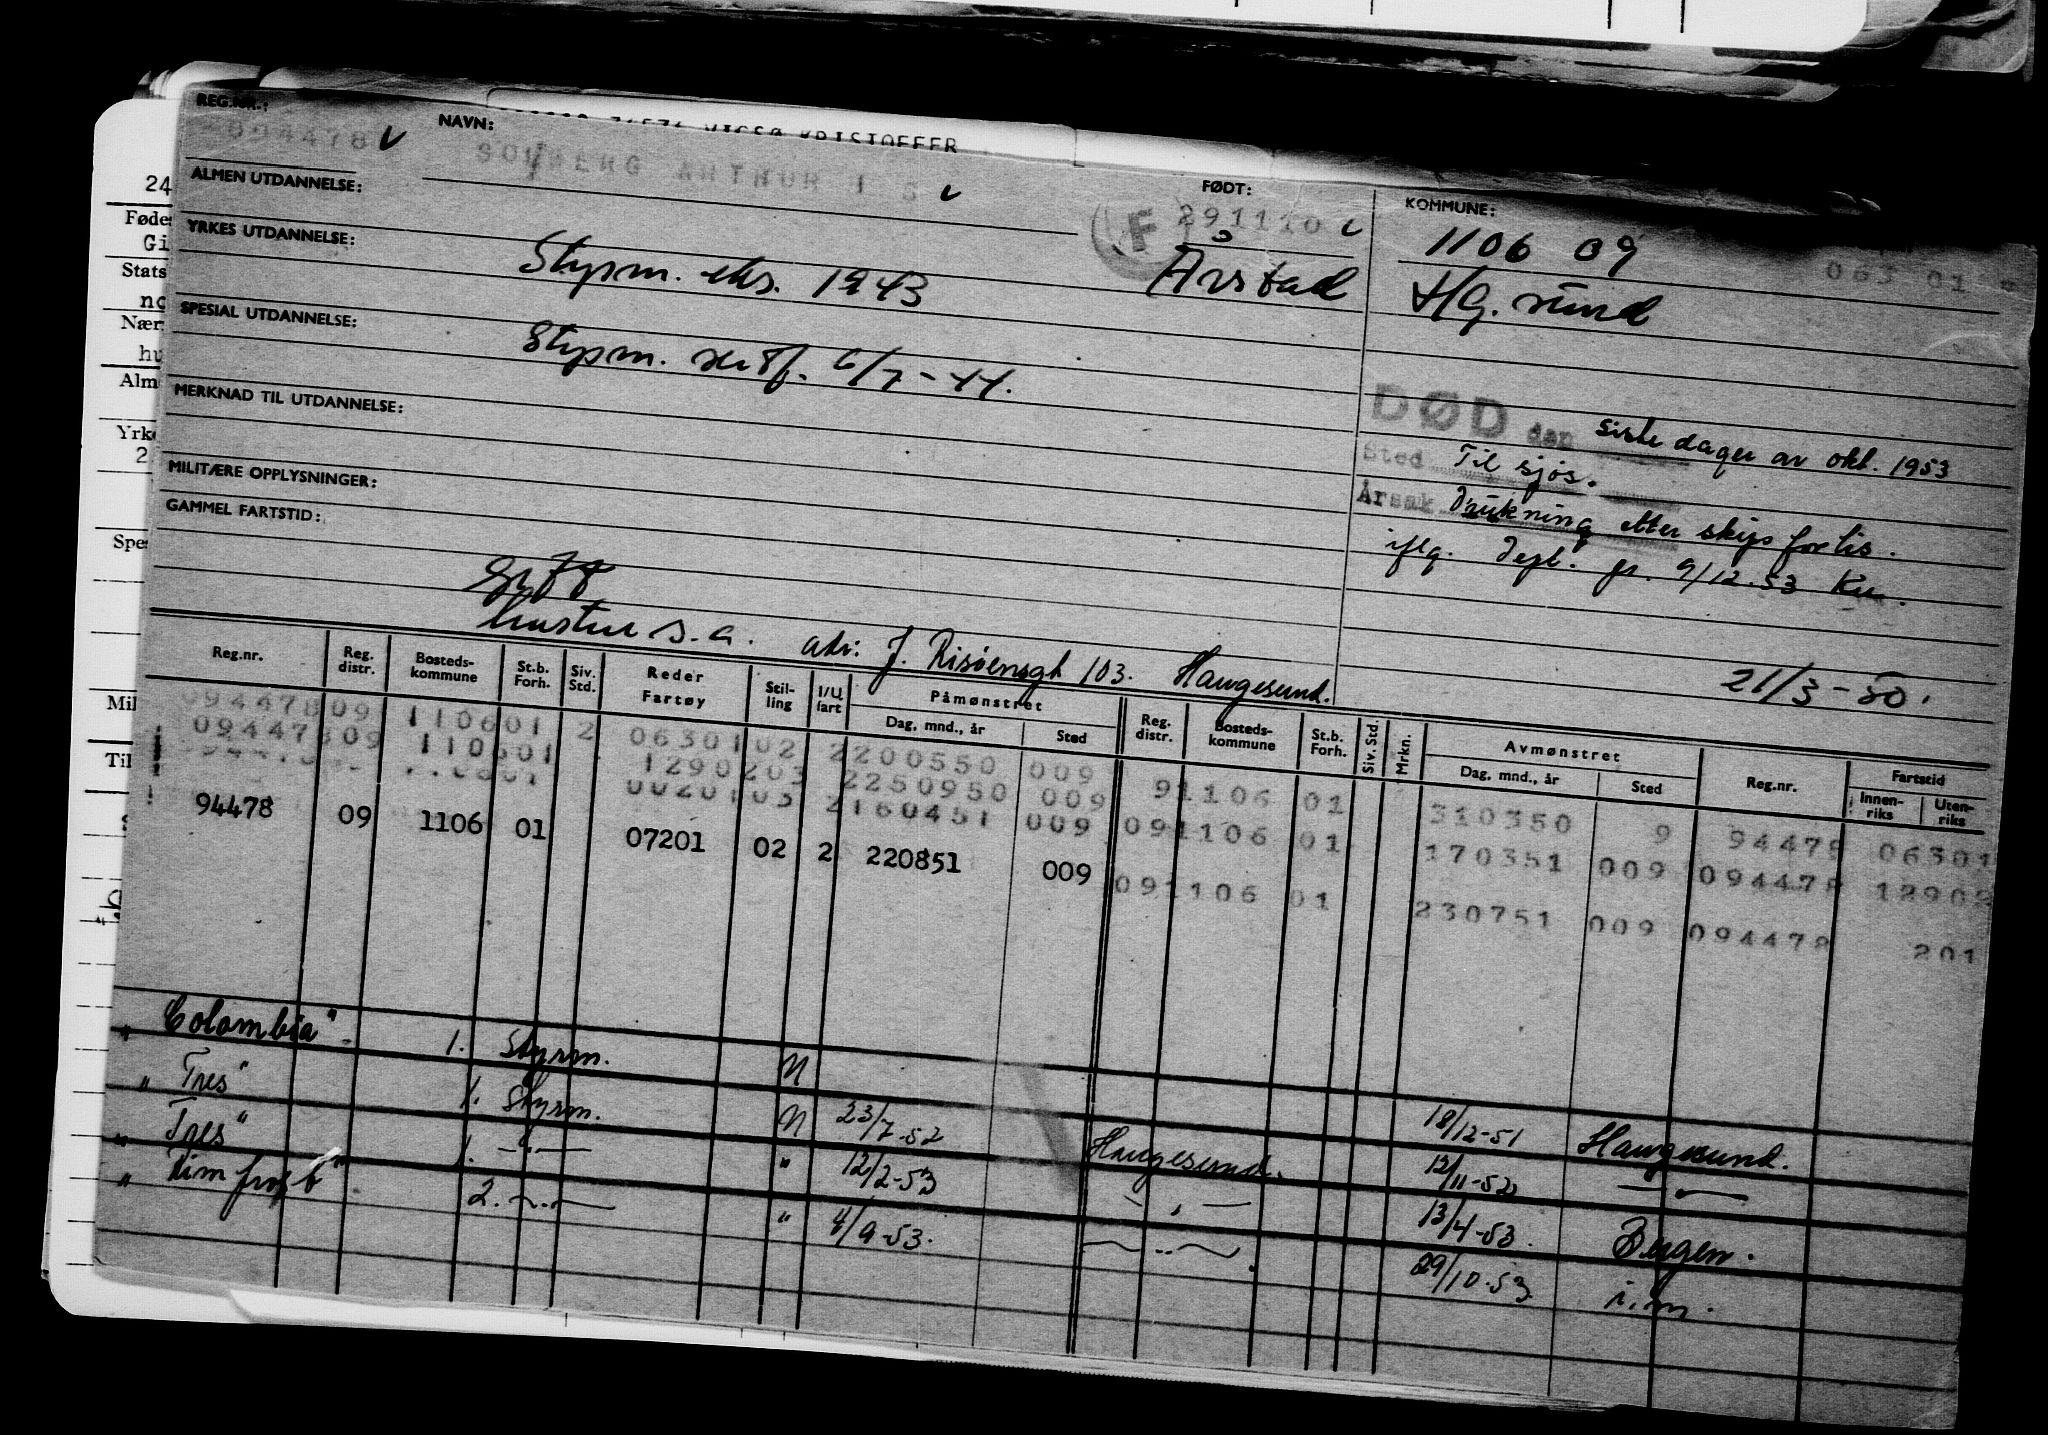 KRISTOFFER
REG.NR.:
094478
NAVN:
ARTHUR I S
ALMEN UTDANNELSE:
FØDT:
291110
KOMMUNE:
1106 09
063 01
YRKES UTDANNELSE:
Styrm. eks. 1943
F
Årstad
H/G. sund
SPESIAL UTDANNELSE:
Styrm. sertf. 6/7-44.
MERKNAD TIL UTDANNELSE:
DØD den siste dager av okt. 1953
Sted Til sjøs.
MILITÆRE OPPLYSNINGER:
Årsak Drukning etter skipsforlis.
iflg. 9/12.53
GAMMEL FARTSTID:
Gift
hustru s.a. adr: J. Risøensgt 103. Haugesund.
21/3-50.
Reg.nr. Reg. distr. Bosteds-kommune St.b. Forh. Siv. Std. Reder Fartøy Stil-ling I/U fart Påmønstret Dag, mnd., år Sted Reg. distr. Bosteds-kommune St.b. Forh. Siv. Std. Mrkn. Avmønstret Dag, mnd., år Sted Reg.nr. Fartstid Innen-riks Uten-riks
09447809 110601 2 0630102 2200550 009 91106 01 310350 9 94478 06301
09447809 110601 1290203 2250950 009 091106 01 170351 009 094478 12902
2160451 009 091106 01 230751 009 094478 201
94478 09 1106 01 07201 02 2 220851 009
"Colombia" 1. Styrm. N 18/12-51 Haugesund.
"Tres" 1. Styrm. N 23/7-52 Haugesund. 12/11-52 — " —
"Tres" 1. — " — " 12/2-53 — " — 13/4-53. Bergen.
2. — " — " 4/9-53. — " — 29/10-53. i.m.
24
Føde
Gi
Stats
no
Nær
hu
Alm
Yrke
2
Spe
Mil
Til